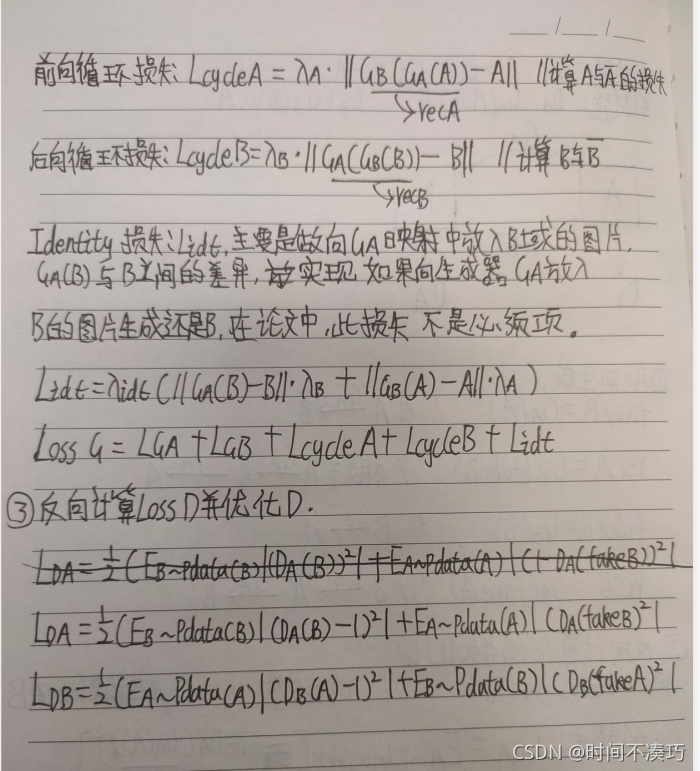 前向循环损失: LcycleA = λA · ||GB(GA(A)) - A||  //计算A与A̅的损失
→recA
后向循环损失: LcycleB = λB · ||GA(GB(B)) - B||  //计算B与B̅
→recB
Identity 损失: Lidt, 主要是做向GA映射中放入B域的图片,
GA(B)与B之间的差异, 实现如果向生成器GA放入
B的图片生成还是B, 在论文中, 此损失 不是必须项。
Lidt = λidt(||GA(B)-B||·λB + ||GB(A)-A||·λA)
Loss G = LGA + LGB + LcycleA + LcycleB + Lidt
③反向计算Loss D并优化D.
LDA = ½(EB~Pdata(B)|(DA(B))²| + EA~Pdata(A)|(1-DA(fakeB))²|
LDA = ½(EB~Pdata(B)|(DA(B)-1)²| + EA~Pdata(A)|(DA(fakeB)²|
LDB = ½(EA~Pdata(A)|(DB(A)-1)²| + EB~Pdata(B)|(DB(fakeA)²|
CSDN @时间不凑巧